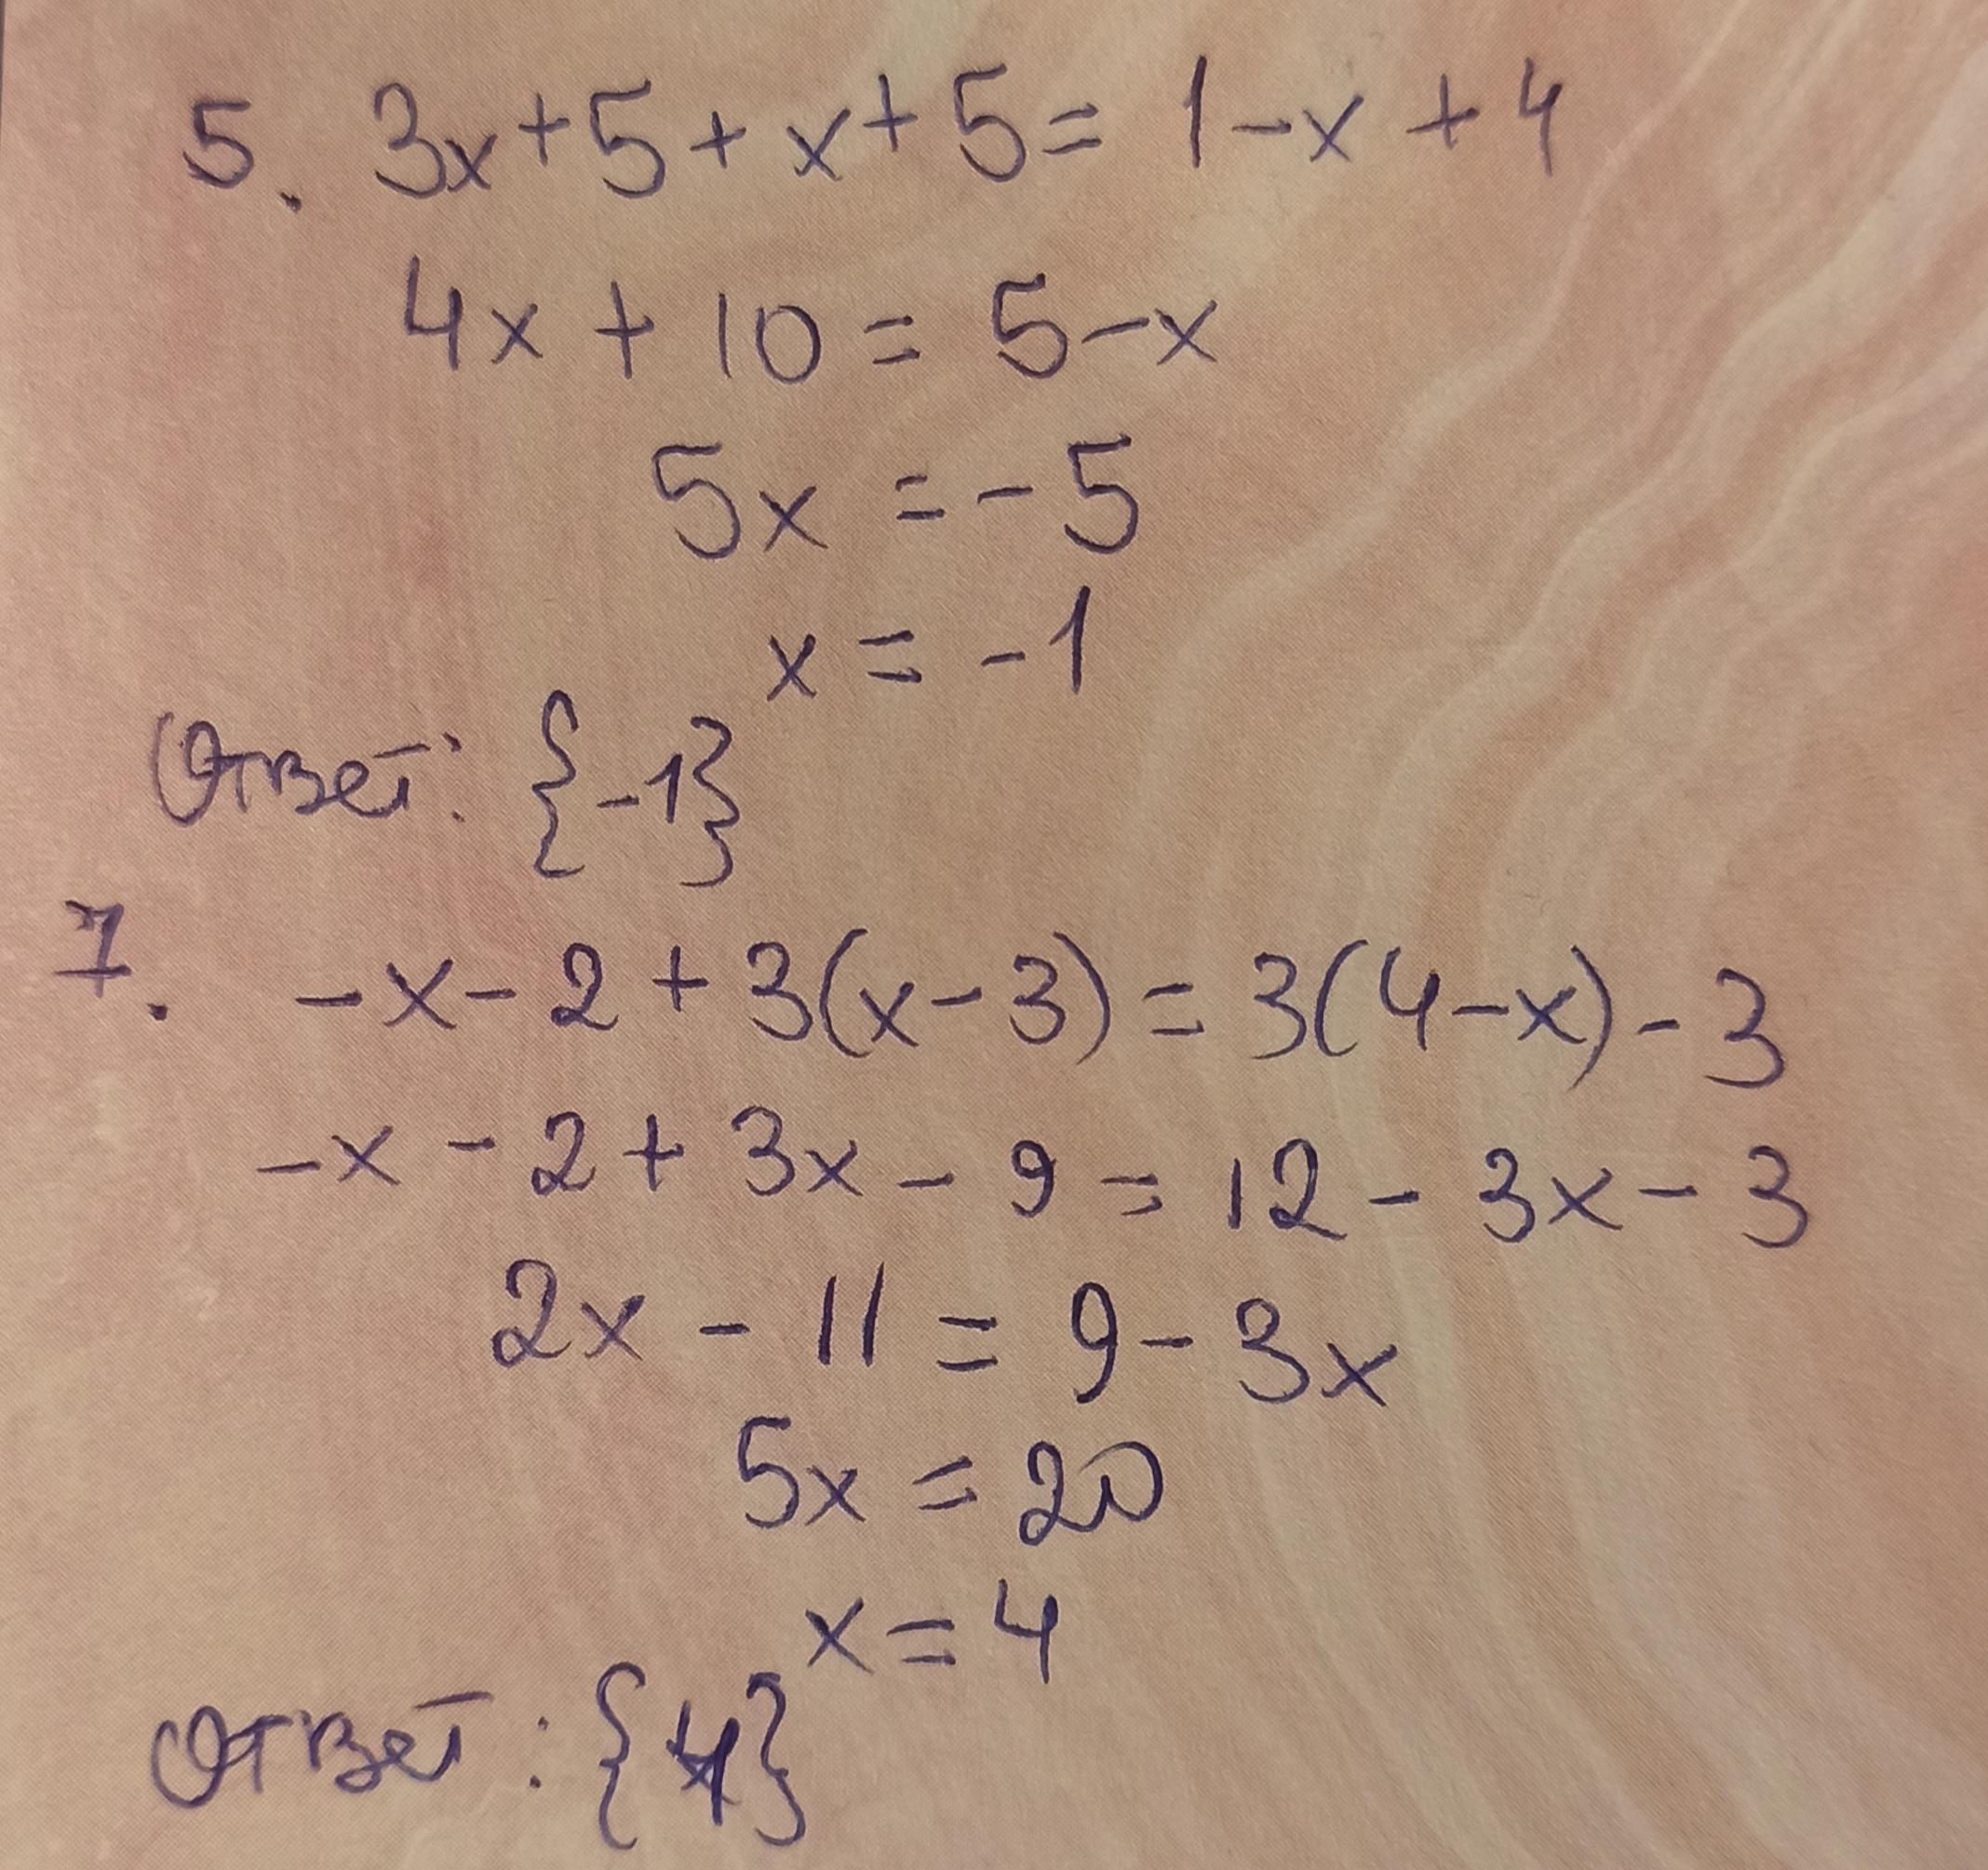 5. 3x+5+x+5=1-x+4
4x+10=5-x
5x=-5
x=-1
Ответ: {-1}
7. -x-2+3(x-3)=3(4-x)-3
-x-2+3x-9=12-3x-3
2x-11=9-3x
5x=20
x=4
Ответ: {4}